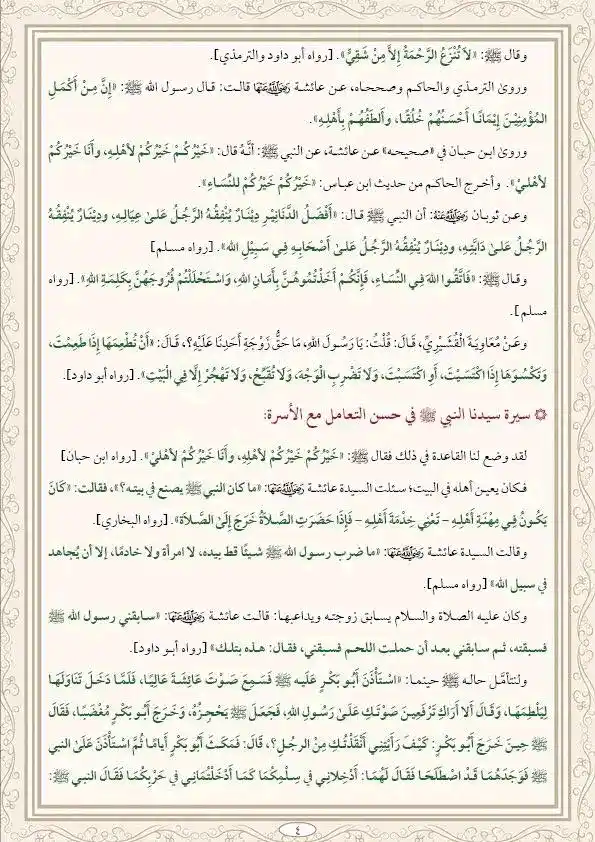 وقال ﷺ: «لاَ تُنْزَعُ الرَّحْمَةُ إلاَّ مِنْ شَقِيٍّ». [رواه أبو داود والترمذي].
وروىٰ الترمذي والحاكم وصححاه، عن عائشة رَضِيَ اللهُ عَنْهَا قالت: قال رسول الله ﷺ: «إِنَّ مِنْ أَكْمَلِ
المُؤْمِنِيْنَ إِيْمَانًا أَحْسَنُهُمْ خُلُقًا، وأَلطَفُهُمْ بِأَهْلِهِ».
وروىٰ ابن حبان في «صحيحه» عن عائشة، عن النبي ﷺ: أنَّهُ قال: «خَيْرُكُمْ خَيْرُكُمْ لأهْلِهِ، وأَنَا خَيْرُكُمْ
لأَهْلِيْ». وأخرج الحاكم من حديث ابن عباس: «خَيْرُكُمْ خَيْرُكُمْ للنِّسَاءِ».
وعن ثوبان رَضِيَ اللهُ عَنْهُ: أن النبي ﷺ قال: «أَفْضَلُ الدَّنَانِيْرِ دِيْنَارٌ يُنْفِقُهُ الرَّجُلُ عَلىٰ عِيَالِهِ، ودِيْنَارٌ يُنْفِقُهُ
الرَّجُلُ عَلىٰ دَابَّتِهِ، ودِيْنَارٌ يُنْفِقُهُ الرَّجُلُ عَلىٰ أَصْحَابِهِ فِي سَبِيْلِ الله». [رواه مسلم]
وقال ﷺ: «فَاتَّقُوا اللهَ فِي النِّسَاءِ، فَإِنَّكُمْ أَخَذْتُمُوهُنَّ بِأَمَانِ اللهِ، وَاسْتَحْلَلْتُمْ فُرُوجَهُنَّ بِكَلِمَةِ اللهِ». [رواه
مسلم].
وعَنْ مُعَاوِيَةَ الْقُشَيْرِيِّ، قَالَ: قُلْتُ: يَا رَسُولَ اللهِ، مَا حَقُّ زَوْجَةِ أَحَدِنَا عَلَيْهِ؟، قَالَ: «أَنْ تُطْعِمَهَا إِذَا طَعِمْتَ،
وَتَكْسُوَهَا إِذَا اكْتَسَيْتَ، أَوِ اكْتَسَبْتَ، وَلَا تَضْرِبِ الْوَجْهَ، وَلَا تُقَبِّحْ، وَلَا تَهْجُرْ إِلَّا فِي الْبَيْتِ». [رواه أبو داود].
سيرة سيدنا النبي ﷺ في حسن التعامل مع الأسرة:
لقد وضع لنا القاعدة في ذلك فقال ﷺ: «خَيْرُكُمْ خَيْرُكُمْ لأَهْلِهِ، وأَنَا خَيْرُكُمْ لأَهْلِيْ». [رواه ابن حبان]
فكان يعين أهله في البيت؛ سئلت السيدة عائشة رَضِيَ اللهُ عَنْهَا: «ما كان النبي ﷺ يصنع في بيته؟»، فقالت: «كَانَ
يَكُونُ فِي مِهْنَةِ أَهْلِهِ – تَعْنِي خِدْمَةَ أَهْلِهِ – فَإِذَا حَضَرَتِ الصَّلاَةُ خَرَجَ إِلَىٰ الصَّلاَةِ». [رواه البخاري].
وقالت السيدة عائشة رَضِيَ اللهُ عَنْهَا: «ما ضرب رسول الله ﷺ شيئًا قط بيده، لا امرأة ولا خادمًا، إلا أن يُجاهد
في سبيل الله» [رواه مسلم].
وكان عليه الصلاة والسلام يسابق زوجته ويداعبها: قالت عائشة رَضِيَ اللهُ عَنْهَا: «سابقني رسول الله ﷺ
فسبقته، ثم سابقني بعد أن حملت اللحم فسبقني، فقال: هذه بتلك» [رواه أبو داود].
ولنتأمَّل حاله ﷺ حينما: «اسْتَأْذَنَ أَبُو بَكْرٍ عَلَيه ﷺ فَسَمِعَ صَوْتَ عَائِشَةَ عَالِيًا، فَلَمَّا دَخَلَ تَنَاوَلَهَا
لِيَلْطِمَهَا، وَقَالَ أَلا أَرَاكِ تَرْفَعِينَ صَوْتَكِ عَلَىٰ رَسُولِ اللهِ، فَجَعَلَ ﷺ يَحْجِزُهُ، وَخَرَجَ أَبُو بَكْرٍ مُغْضَبًا، فَقَالَ
ﷺ حِينَ خَرَجَ أَبُو بَكْرٍ: كَيْفَ رَأَيْتِنِي أَنْقَذْتُكِ مِنْ الرجُلِ؟، قَالَ: فَمَكَثَ أَبُو بَكْرٍ أَيامًا ثُمَّ اسْتَأْذَنَ عَلَىٰ النبي
ﷺ فَوَجَدَهُمَا قَدْ اصْطَلَحَا فَقَالَ لَهُمَا: أَدْخِلانِي فِي سِلْمِكُمَا كَمَا أَدْخَلْتُمَانِي فِي حَرْبِكُمَا فَقَالَ النبي ﷺ:
٤